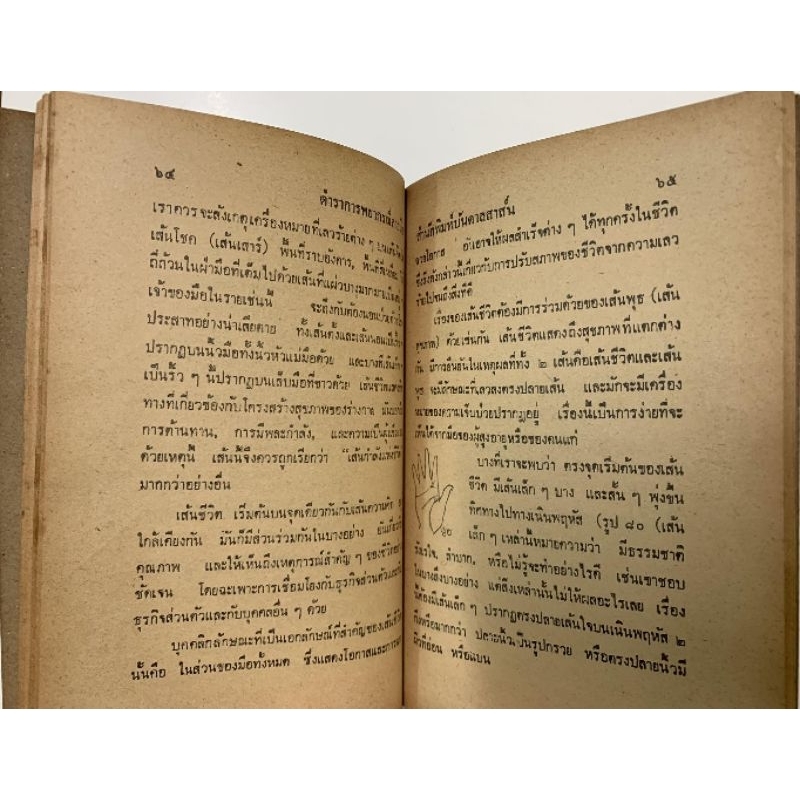 ๖๔
ตำราการพยากรณ์
เราควรจะสังเกตุเครื่องหมายที่เลวร้ายต่าง ๆ
เส้นโชค (เส้นเสาร์) พื้นที่ราบอังคาร,
ถี่ถ้วนในฝ่ามือที่เต็มไปด้วยเส้นที่แผ่วบางมากมาย
เจ้าของมือในรายเช่นนี้ จะถึงกับต้องนอนป่วย
ประสาทอย่างน่าเสียดาย ทั้งเส้นตั้งและเส้นนอน
ปรากฏบนนิ้วมือทั้งนิ้วหัวแม่มือด้วย และบางที
เป็นริ้ว ๆ นี้ปรากฏบนเล็บมือที่ขาวด้วย เส้นชีวิต
ทางที่เกี่ยวข้องกับโครงสร้างสุขภาพของร่างกาย
การต้านทาน, การมีพละกำลัง, และความเป็น
ด้วยเหตุนี้ เส้นนี้จึงควรถูกเรียกว่า "เส้นกำลังแห่ง
มากกว่าอย่างอื่น
เส้นชีวิต เริ่มต้นบนจุดเดียวกันกับเส้นความคิด
ใกล้เคียงกัน มันก็มีส่วนร่วมกันในบางอย่าง
คุณภาพ และให้เห็นถึงเหตุการณ์สำคัญ ๆ ของชีวิต
ชัดเจน โดยฉะเพาะการเชื่อมโยงกับธุรกิจส่วนตัว
ธุรกิจส่วนตัวและกับบุคคลอื่น ๆ ด้วย
บุคคลิกลักษณะที่เป็นเอกลักษณ์ที่สำคัญของเส้นชีวิต
นั้นคือ ในส่วนของมือทั้งหมด ซึ่งแสดงโอกาสและการ
๖๕
สำนักพิมพ์บันดาลสาส์น
ฉวยโอกาส อันอาจให้ผลสำเร็จต่าง ๆ ได้ทุกครั้งในชีวิต
ซึ่งรังดังกล่าวนี้เกี่ยวกับการปรับสภาพของชีวิตจากความเลว
ร้ายไปจนถึงสิ่งที่ดี
เรื่องของเส้นชีวิตต้องมีการร่วมด้วยของเส้นพุธ (เส้น
สุขภาพ) ด้วยเช่นกัน เส้นชีวิตแสดงถึงสุขภาพที่แตกต่าง
กัน มีการยืนยันในเหตุผลที่ทั้ง ๒ เส้นคือเส้นชีวิตและเส้น
พุธ จะมีลักษณะที่เลวลงตรงปลายเส้น และมักจะมีเครื่อง
หมายของความเจ็บป่วยปรากฏอยู่ เรื่องนี้เป็นการง่ายที่จะ
เห็นได้จากมือของผู้สูงอายุหรือของคนแก่
บางที่เราจะพบว่า ตรงจุดเริ่มต้นของเส้น
ชีวิต มีเส้นเล็ก ๆ บาง และสั้น ๆ พุ่งขึ้น
ทิศทางไปทางเนินพฤหัส (รูป ๘๐ (เส้น
๘๐ เล็ก ๆ เหล่านี้หมายความว่า มีธรรมชาติ
ลำบาก, หรือไม่รู้จะทำอย่างไรดี เช่นเขาชอบ
ในบางสิ่งบางอย่าง แต่สิ่งเหล่านั้นไม่ให้ผลอะไรเลย เรื่อง
นี้ต้องมีเส้นเล็ก ๆ ปรากฏตรงปลายเส้นใจบนเนินพฤหัส ๒
กิ่งหรือมากกว่า ปลายนิ้วเป็นรูปกรวย หรือตรงปลายนิ้วมี
ผิวที่อ่อน หรือแบน